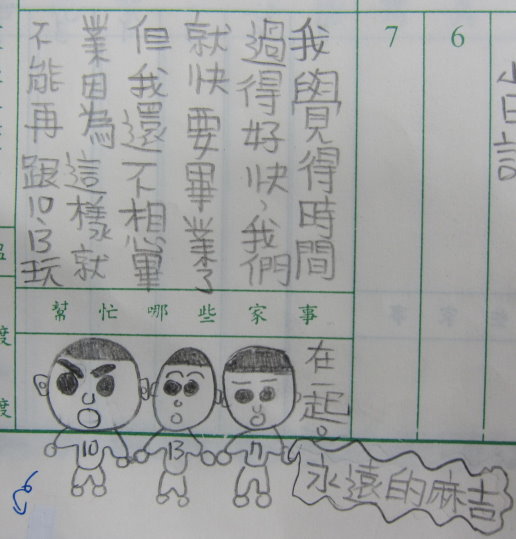 日記
6
7
我覺得時間
過得好快,我們
就快要畢業了
但我還不想畢
業因為這樣就
不能再跟10、13玩
在一起。
幫忙哪些家事
10
13
永遠的麻吉
度
度